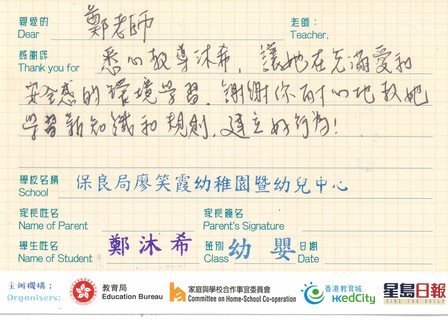 親愛的 鄭老師 老師：
Dear Teacher,
感謝您 悉心教導沐希，讓她在充滿愛和
Thank you for
安全感的環境學習。謝謝你耐心地教她
學習新知識和規則，建立好行為！
學校名稱 保良局廖笑霞幼稚園暨幼兒中心
School
家長姓名 家長簽名
Name of Parent Parent's Signature
學生姓名 鄭沐希 班別 幼嬰 日期
Name of Student Class Date
主辦機構： 教育局 家庭與學校合作事宜委員會 香港教育城 星島日報
Organisers: Education Bureau Committee on Home-School Co-operation HKedCity